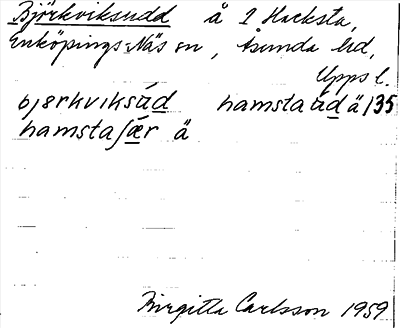 Björkviksudd å 2 Hacksta,
Enköpings-Näs sn, Åsunda hd,
Upps l.
bjørkviksùd hamstaùd ä /35
hamstaʃær ä
Birgitta Carlsson 1959